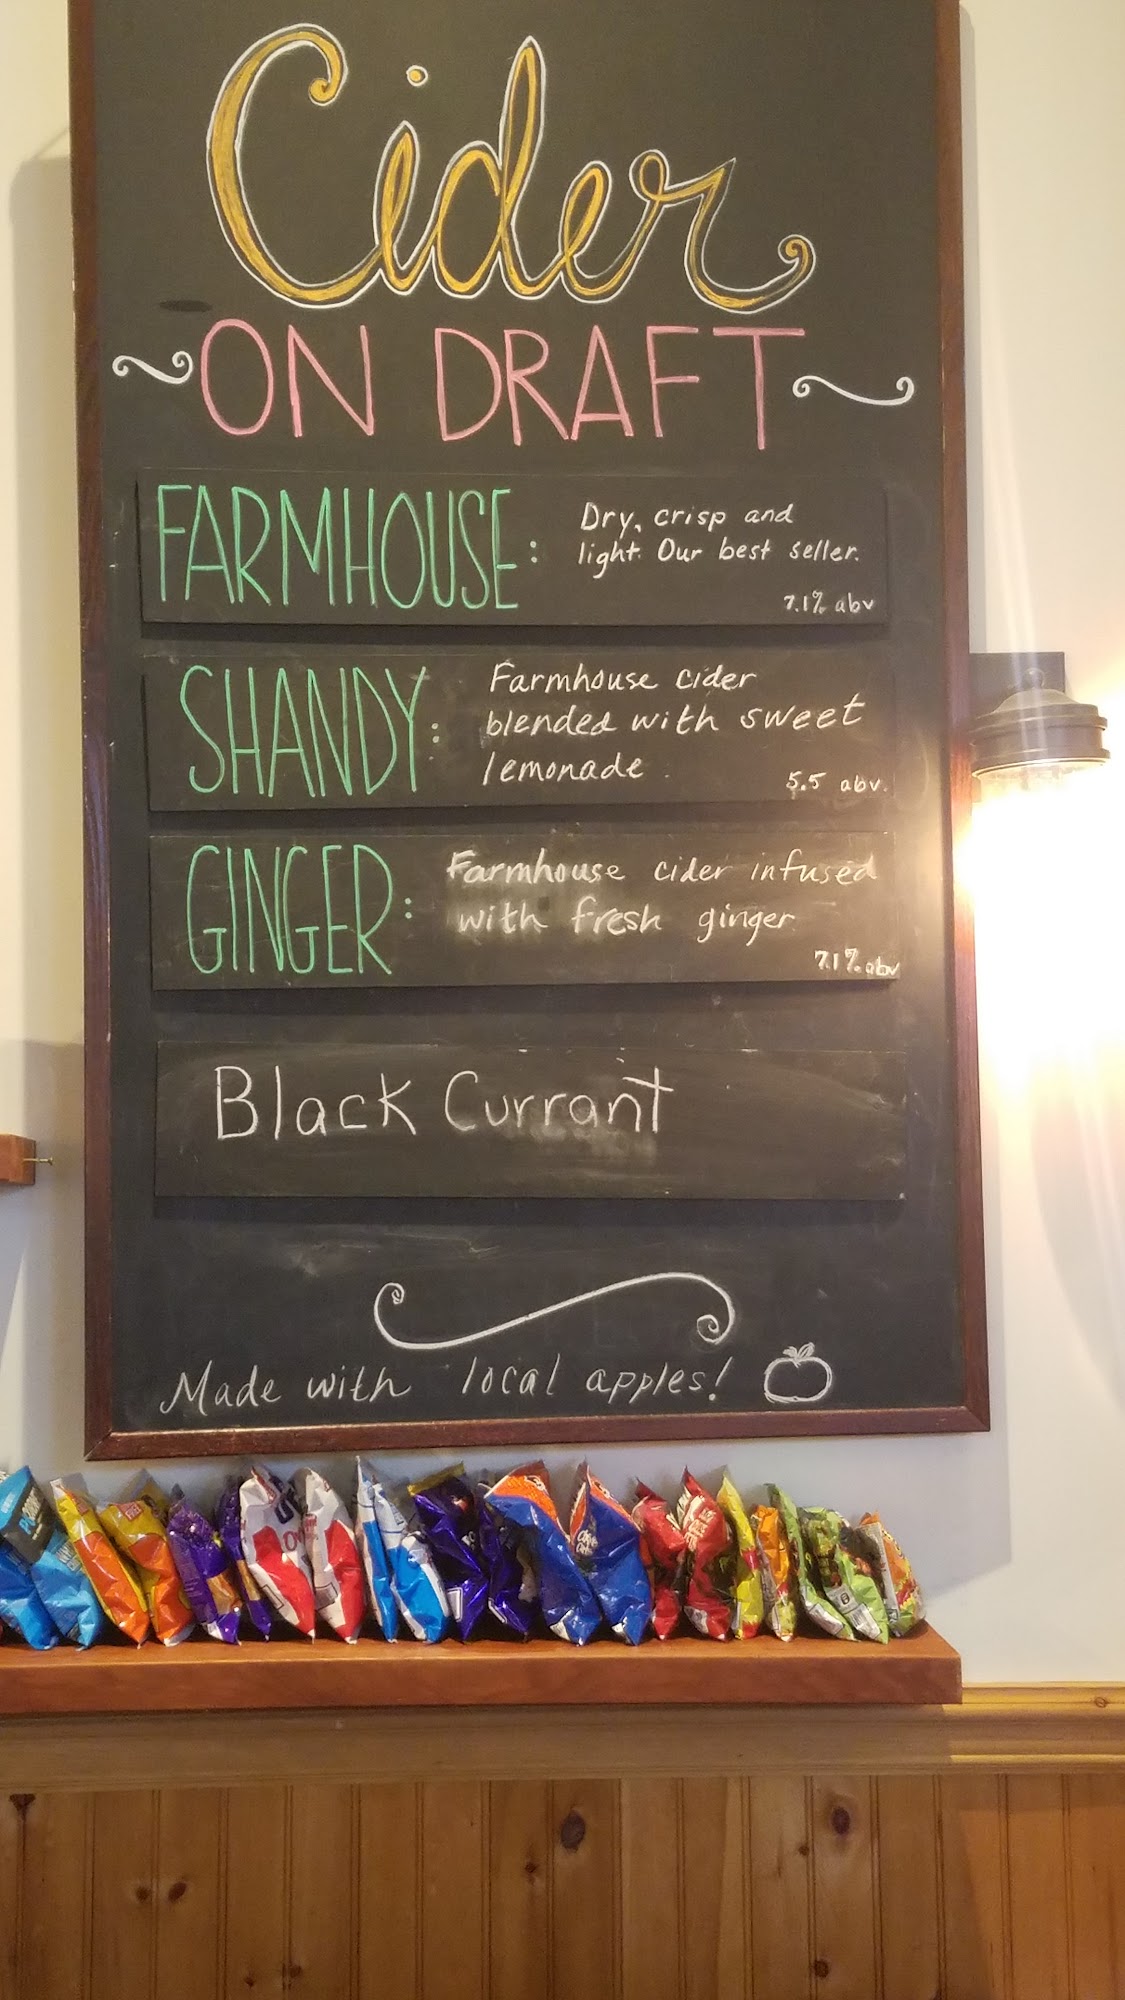 Cider
ON DRAFT
FARMHOUSE:
Dry, crisp and
light. Our best seller.
7.1% abv
SHANDY:
Farmhouse cider
blended with sweet
lemonade.
5.5 abv.
GINGER:
Farmhouse cider infused
with fresh ginger
7.1% abv
Black Currant
Made with local apples!